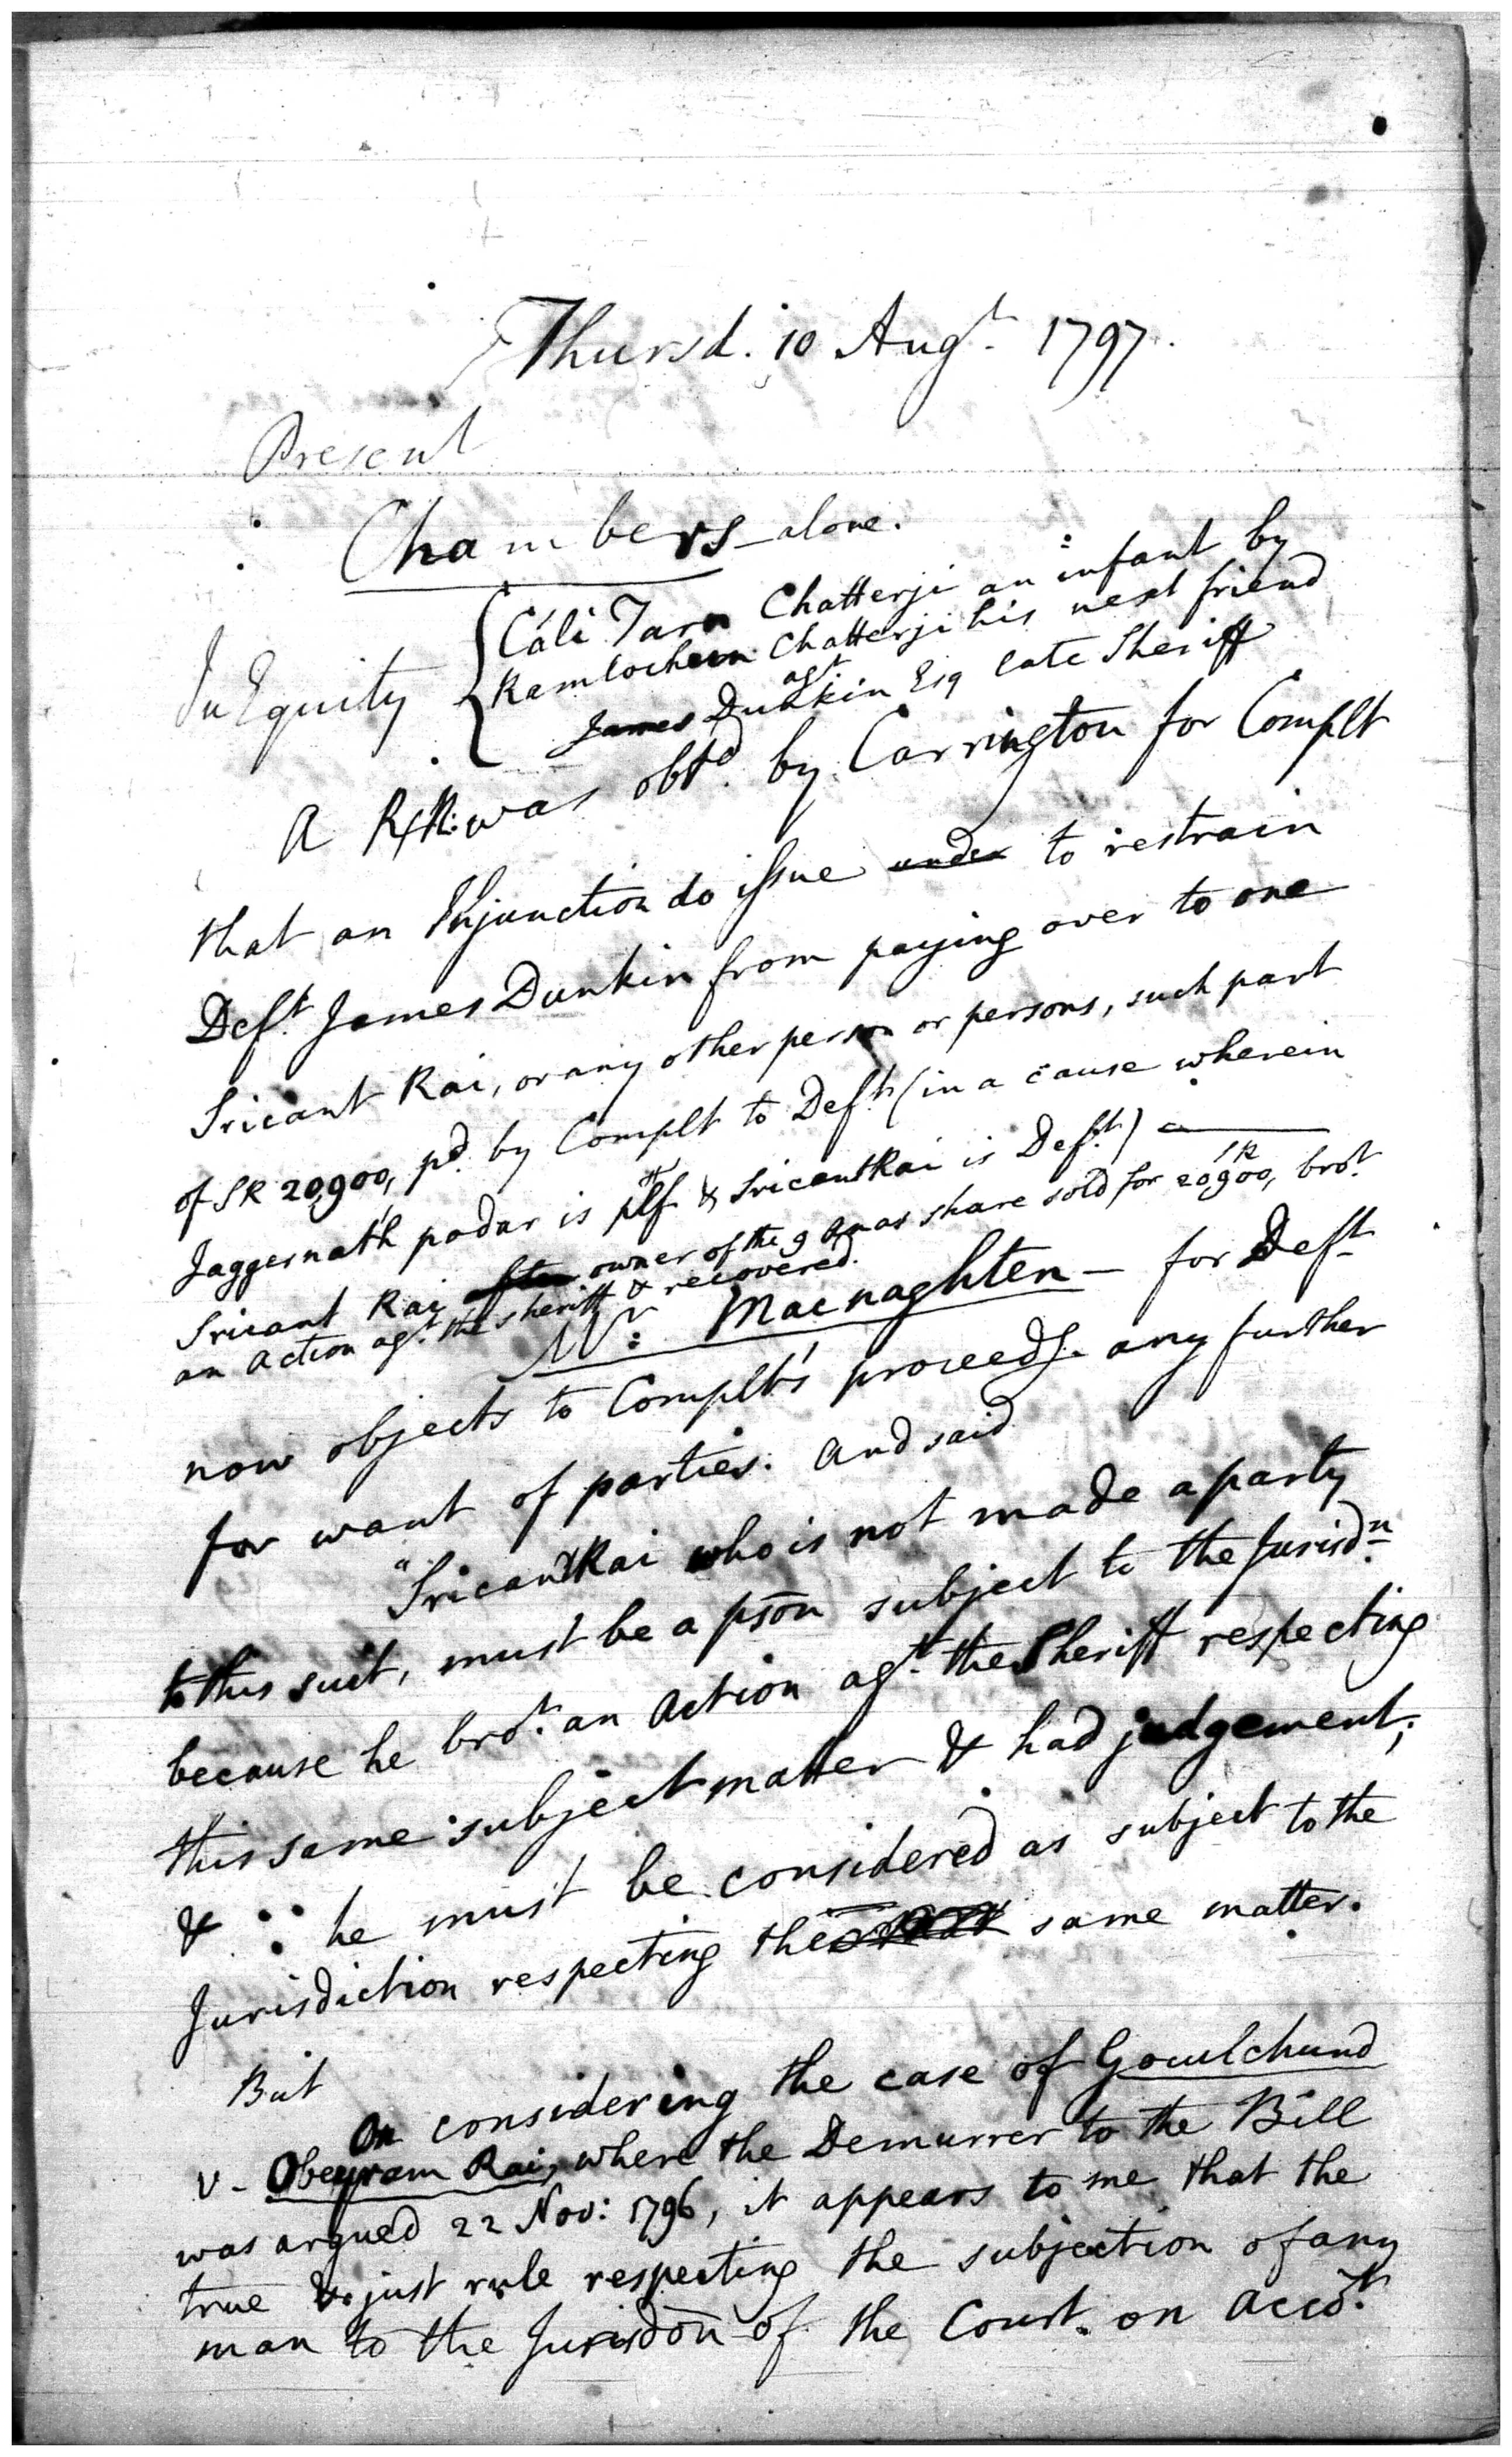 Thursd. 10 Augt. 1797.
Present
Chambers alone.
In Equity
Cáli Tara Chatterji an infant by
Ramlochan Chatterji his next friend
agt.
James Dunkin Esq late Sheriff
A R/N: was obtd. by Carrington for Complt
that an Injunction do issue under to restrain
Deft. James Dunkin from paying over to one
Sricant Rai, or any other person or persons, such part
of SR 20,900, pd. by Complt to Deft. (in a cause wherein
Jaggernath podar is plf & Sricant Rai is Deft.)
Sricant Rai owner of the 9 Anas share sold for SR 20,900, brot.
an Action agt. the sheriff & recovered.
Mr: Macnaghten – for Deft
now objects to Complt's proceedg. any further
for want of parties: and said
"Sricant Rai who is not made a party
to this suit, must be a pson subject to the Jurisdn.
because he brot. an Action agt. the Sheriff respecting
this same subject matter & had judgement;
& ∴ he must be considered as subject to the
Jurisdiction respecting the same matter.
But
On considering the case of Gowlchund
v - Obeyram Rai, where the Demurrer to the Bill
was argued 22 Nov: 1796, it appears to me that the
true & just rule respecting the subjection of any
man to the Jurisdon of the Court on Accot.